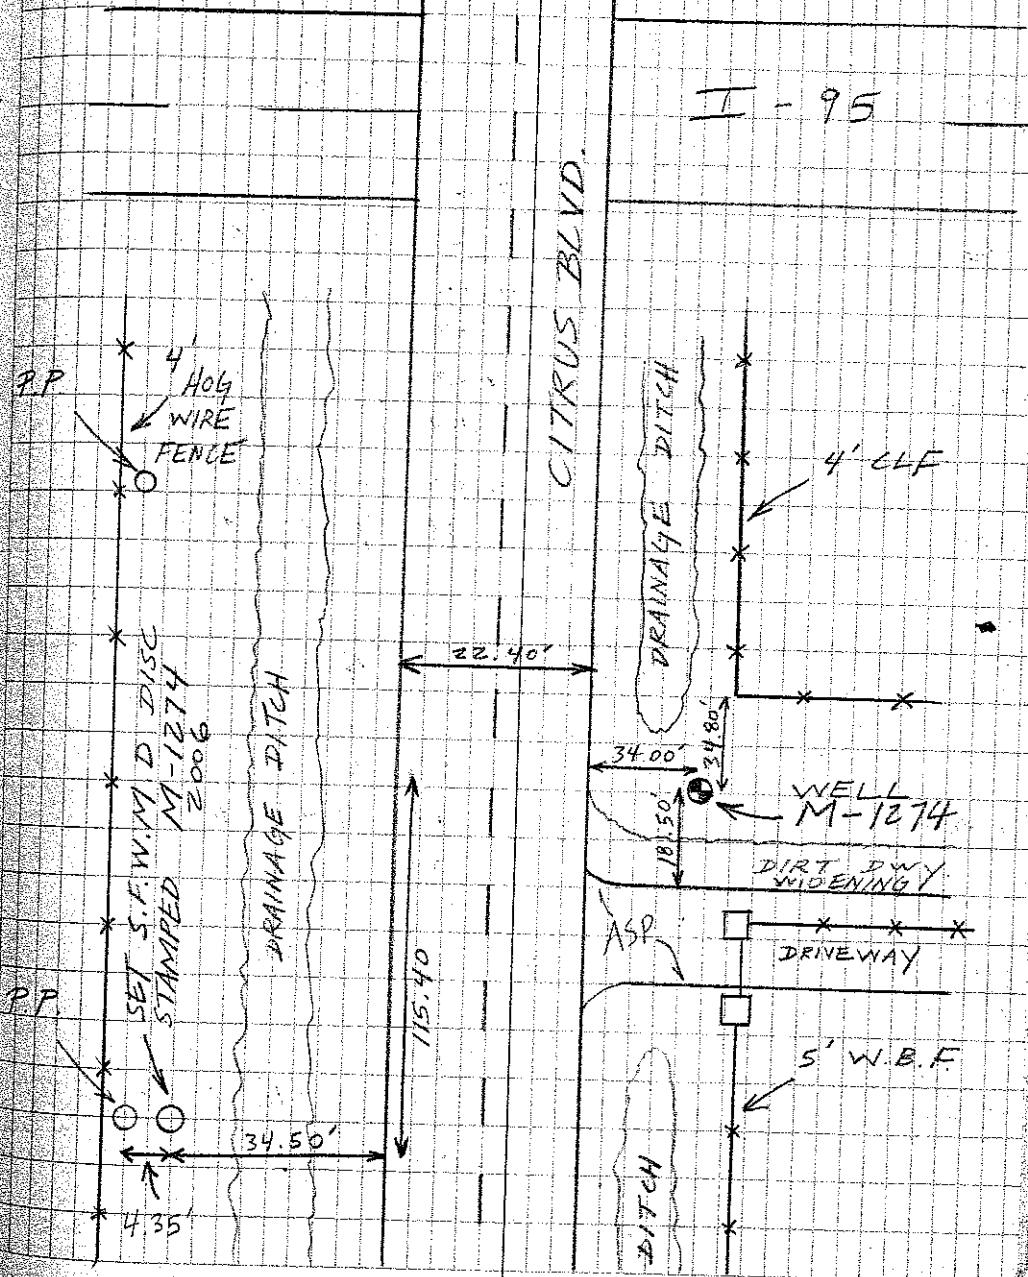 I - 95
CITRUS BLVD.
P.P.
4'
HOG
WIRE
FENCE
DRAINAGE DITCH
4' CLF
22.40'
SET S.F.W.M D DISC
STAMPED M-1274
2006
DRAINAGE DITCH
34.00'
34.80'
WELL
M-1274
DIRT DWY
WIDENING
ASP
DRIVEWAY
115.40
P.P.
5' W.B.F.
34.50'
4.35'
DITCH